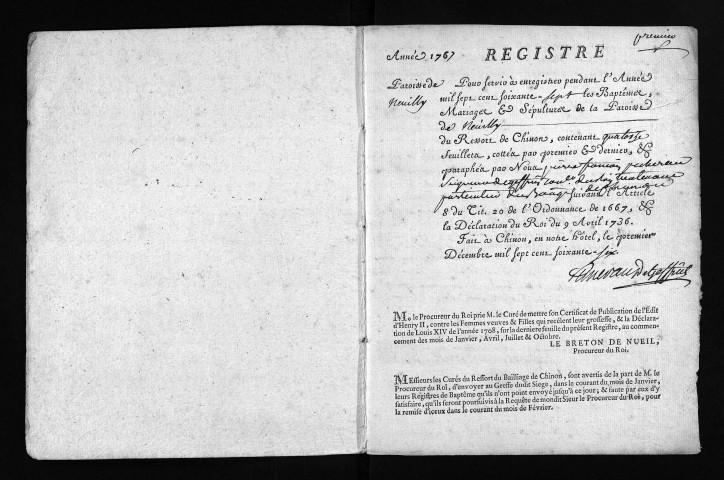 premier
Année 1767
REGISTRE
Paroisse de
Neuilly
Pour servir à enregistrer pendant l'Année
mil sept cent soixante-sept les Baptêmes,
Mariages & Sépultures de la Paroisse
de Neuilly
du Ressort de Chinon, contenant quatorze
feuillets, cottés par premier & dernier, &
paraphés par Nous pierre françois
Lieutenant
particulier suivant l'Article
8 du Tit. 20 de l'Ordonnance de 1667, &
la Déclaration du Roi du 9 Avril 1736.
Fait à Chinon, en notre hôtel, le premier
Décembre mil sept cent soixante-six.
M. le Procureur du Roi prie M. le Curé de mettre son Certificat de Publication de l'Edit
d'Henry II, contre les Femmes veuves & Filles qui recélent leur grossesse, & la Déclara-
tion de Louis XIV de l'année 1708, sur la derniere feuille du présent Registre, au commen-
cement des mois de Janvier, Avril, Juillet & Octobre.
LE BRETON DE NUEIL,
Procureur du Roi.
MEssieurs les Curés du Ressort du Bailliage de Chinon, sont avertis de la part de M. le
Procureur du Roi, d'envoyer au Greffe dudit Siege, dans le courant du mois de Janvier,
leurs Registres de Baptême qu'ils n'ont point envoyé jusqu'à ce jour; & faute par eux d'y
satisfaire, qu'ils seront poursuivis à la Requête de mondit Sieur le Procureur du Roi, pour
la remise d'iceux dans le courant du mois de Février.